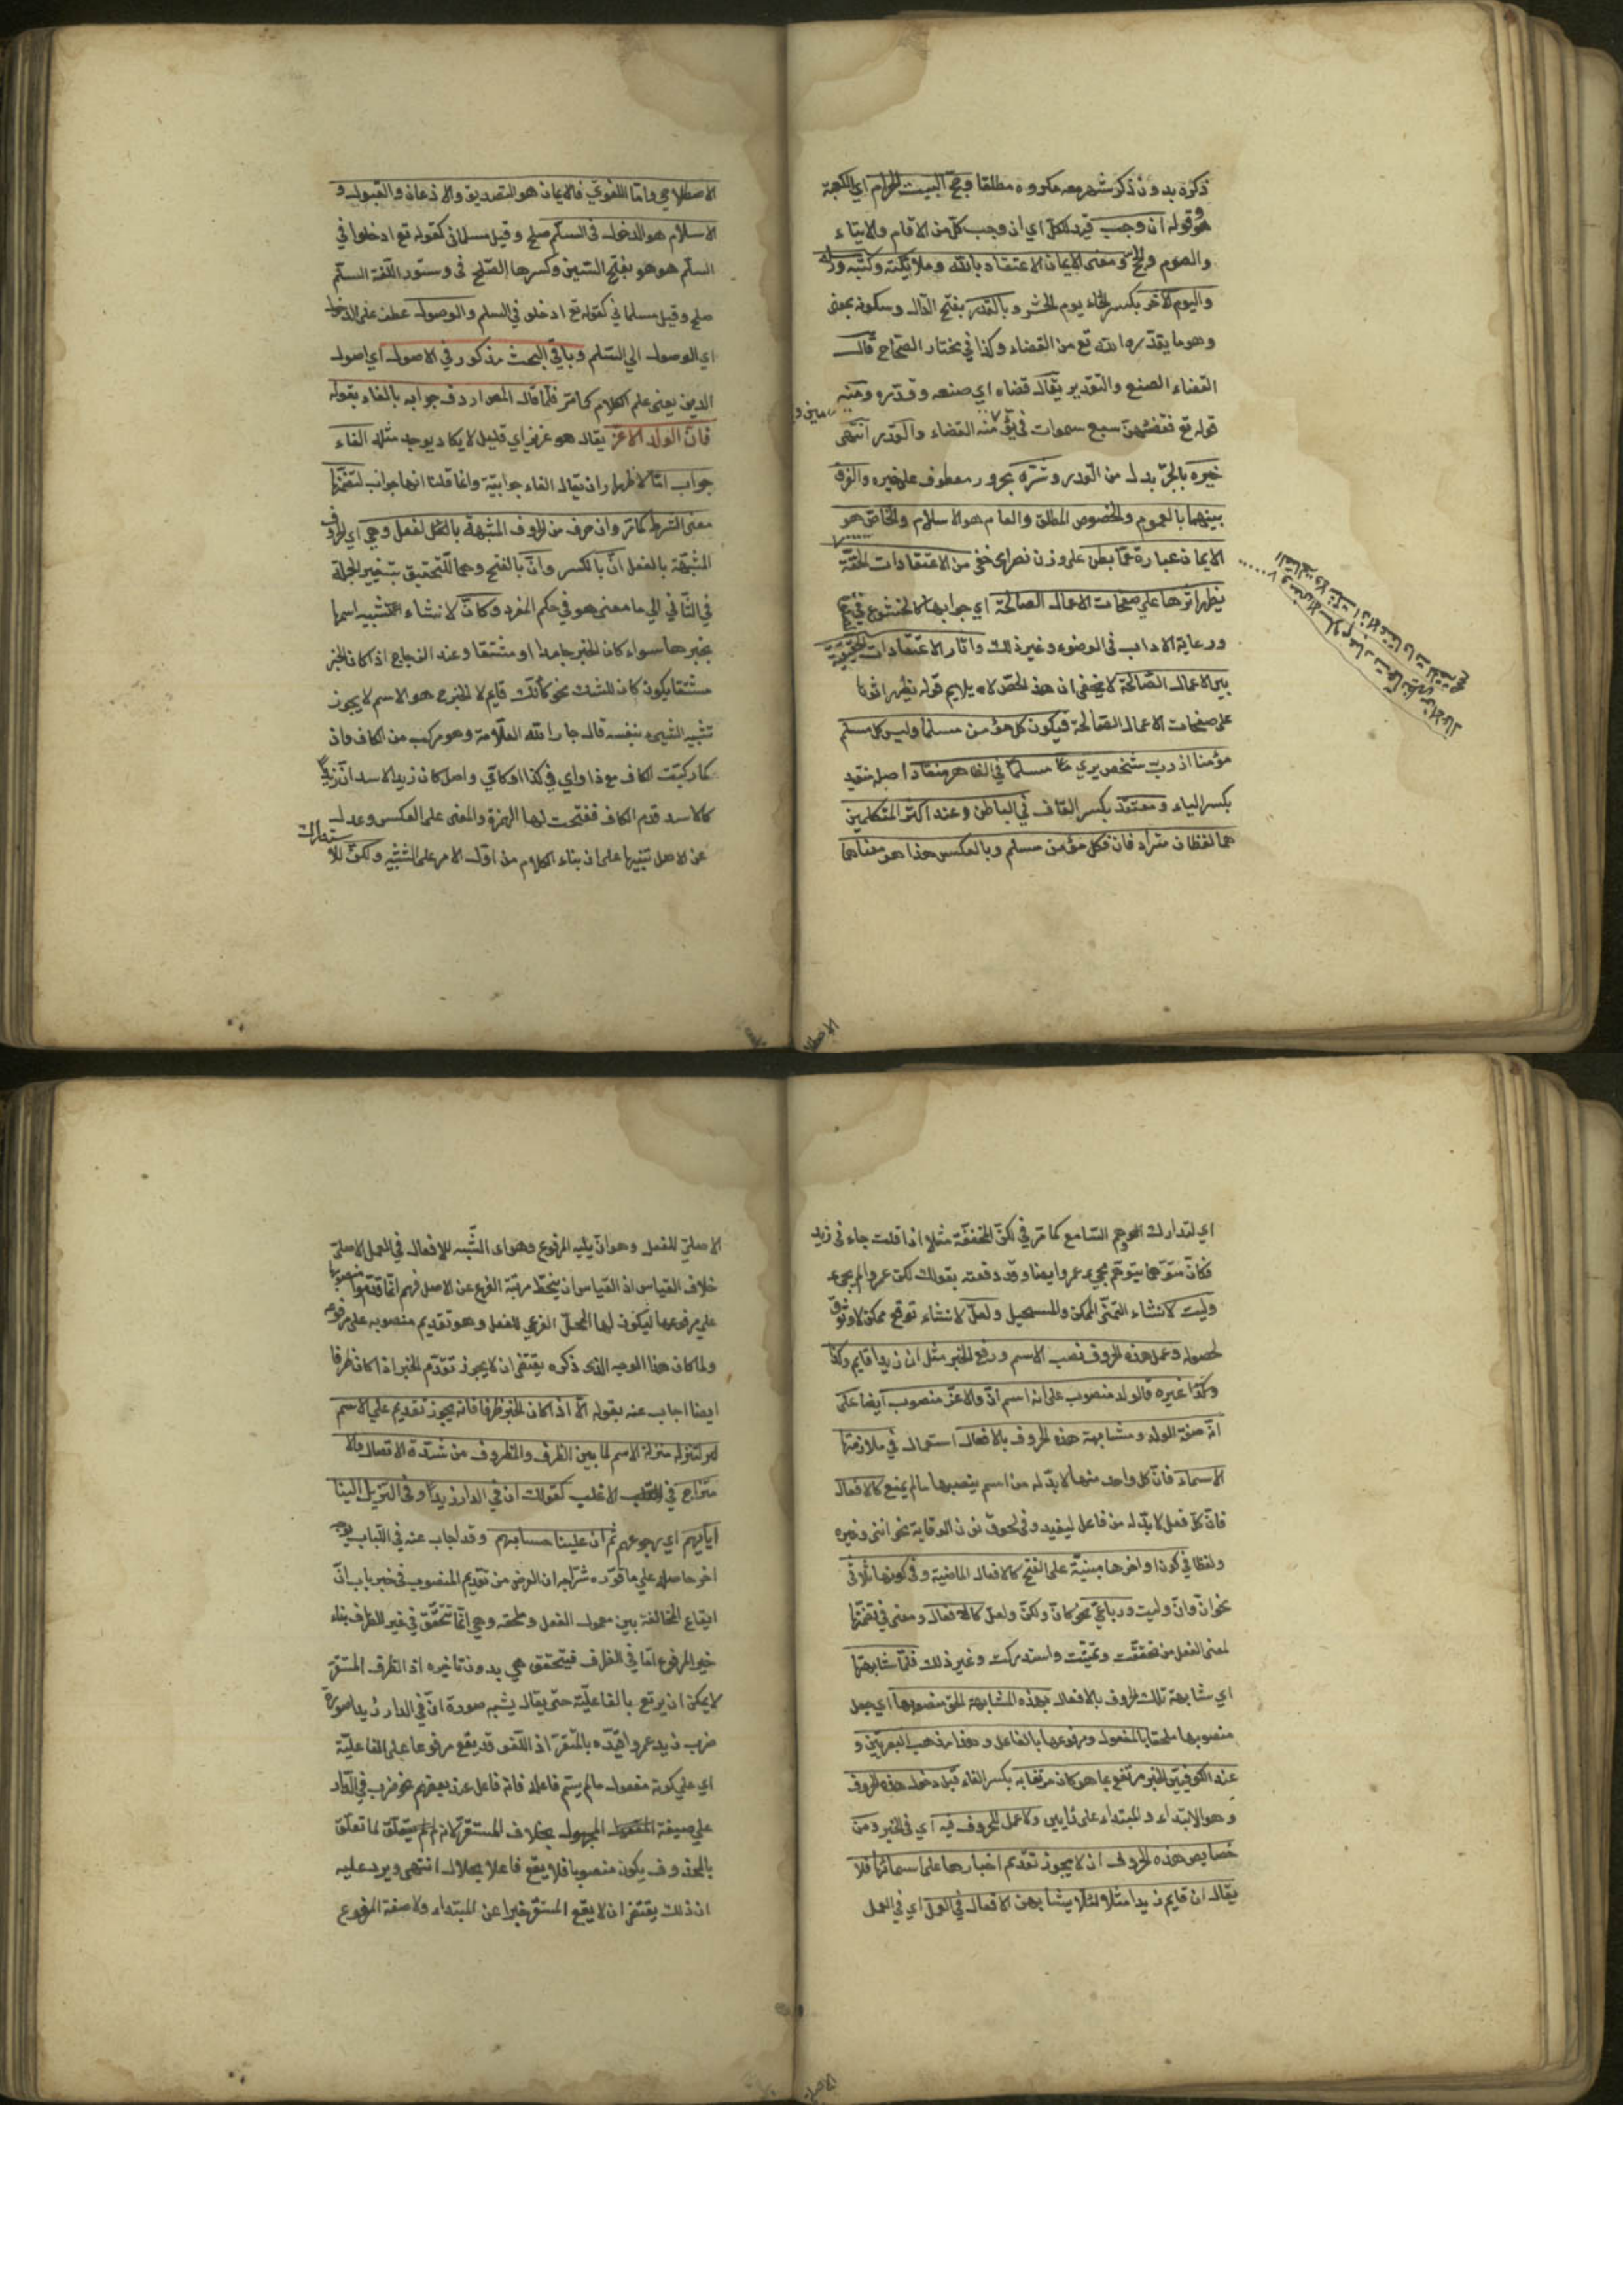 ذكره بدون ذكر شهر معه مكروه مطلقا وحج البيت الحرام اي الكعبة
وقوله ان وجب قيد للكل اي ان وجب كل من الاقام والايتاء
والصوم والحج ومعنى الايمان الاعتقاد بالله وملايكته وكتبه ورسله
واليوم الآخر بكسر الخاء يوم الحشر وبالقدر بفتح الدال وسكونه بمعنى
وهو ما يقدره الله تع من القضاء وكذا في مختار الصحاح قال
القضاء الصنع والتقدير يقال قضاه اي صنعه وقدره ومنه
قوله تع فقضيهن سبع سموات في يومين ومنه القضاء والقدر انتهى
خيره بالجر بدل من القدر وشره مجرور معطوف على خيره والفرق
بينهما بالعموم والخصوص المطلق والعام هو الاسلام والخاص هو
الايمان عبارة عما بطن على وزن نصر اي خفي من الاعتقادات الحقة
يظهر اثرها على صفحات الاعمال الصالحة اي جوابها كالخشوع في
ورعاية الاداب في الوضوء وغير ذلك واثار الاعتقادات الحقيقية
بين الاعمال الصالحة لا يخفى ان هذا لانه يلايم قوله يظهر اثرها
على صفحات الاعمال الصالحة فيكون كل مؤمن مسلما وليس كل مسلم
مؤمنا اذ رب شخص يرى مسلما في الظاهر منقادا اصله منقيد
بكسر الياء ومعتقد بكسر القاف في الباطن وعند اكثر المتكلمين
هما لفظان مترادفان فكل مؤمن مسلم وبالعكس هذا هو معناهما
الاصطلا
الاصطلاحي واما اللغوي فالايمان هو التصديق والاذعان والقبول و
الاسلام هو الدخول في السلم صلح وقيل مسلماني كقوله تع ادخلوا في
السلم هو هو بفتح السين وكسرها الصلح في دستور اللغة السلم
صلح وقيل مسلماني كقوله تع ادخلوا في السلم والوصول عطف على الدخول
اي الوصول الى السلم وباقي البحث مذكور في الاصول اي اصول
الدين يعني علم الكلام كما مر فلما قال المص اردف جوابه بالفاء بقوله
فان الولد الاعز يقال هو عزيز اي قليل لا يكاد يوجد مثله الفاء
جواب اما لاظهار ان يقال الفاء جوابية وانما قلنا انها جواب لتضمنها
معنى الشرط كما مر وان حرف من الحروف المشبهة بالفعل وهي اي الحروف
المشبهة بالفعل انّ بالكسر وانّ بالفتح وهما للتحقيق بتغيير الجملة
في الثاني الى ما معنى هو في حكم المفرد وكانّ لانشاء التشبيه اسمها
بخبرها سواء كان الخبر جامدا او مشتقا وعند الزجاج اذا كان الخبر
مشتقا يكون كان للشك نحو كأنك قايم لان الخبر ح هو الاسم لا يجوز
تشبيه الشيء بنفسه قال جار الله العلامة وهو مركب من الكاف وان
كما ركبت الكاف مع ذا واي في كذا وكاي واصل كان زيدا لاسد ان زيدا
كالاسد قدم الكاف ففتحت لها الهمزة والمعنى على العكس وعدل
عن الاصل تنبيها على ان بناء الكلام من اول الامر على التشبيه ولكن للاستدراك
اي لتدارك التوهم السامع كما مر في لكن المخففة مثلا اذا قلت جاءني زيد
فكان متوهما يتوهم مجيء عمرو ايضا وقد دفعته بقولك لكن عمروا لم يجيء
وليت لانشاء التمني الممكن والمستحيل ولعل لانشاء توقع ممكن لا وثوق
لحصوله وعمل هذه الحروف نصب الاسم ورفع الخبر مثل ان زيدا قايم وكذا
وكذا غيره فالولد منصوب على انه اسم ان والاعز منصوب ايضا على
انه صفة الولد ومشابهة هذه الحروف بالافعال استعمال في ملازمتها
الاسماء فان كل واحد منها لا بد له من اسم ينصبها ما لم يمنع كالافعال
فان كل فعل لا بد له من فاعل ليفيد وفي لحوق نون الوقاية نحو انني وغيره
ولفظا في كون اواخرها مبنية على الفتح كالافعال الماضية وفي كونها ثلاثي
نحو ان وان وليت ورباعي نحو كان ولكن ولعل كالافعال ومعنى في تضمنها
لمعنى الفعل من تحققت وتمنيت واستدركت وغير ذلك فلما شابهتها
اي مشابهة تلك الحروف بالافعال بهذه المشابهة الحق منصوبها اي جعل
منصوبها ملحقا بالمفعول ومرفوعها بالفاعل وهذا مذهب البصريين و
عند الكوفيين الخبر مرتفع بما هو كان مرتفعا به بكسر الفاء قبل دخول هذه الحروف
وهو الابتداء والمبتداء على رايين ولا عمل للحروف فيه اي في الخبر ومن
خصايص هذه الحروف ان لا يجوز تقديم اخبارها على اسمائها فلا
يقال ان قايم زيدا مثلا لئلا يشابهن الافعال في العمل اي في العمل
الاصلي
الاصلي للفعل وهو ان يليه المرفوع وهو اي الشبه للافعال في العمل الاصلي
خلاف القياس اذ القياس ان ينحط مرتبة الفرع عن الاصل فهم انما قدموا منصوبها
على مرفوعها ليكون لها العمل الفرعي للفعل وهو تقديم منصوبه على مرفوعه
ولما كان هذا الوجه الذي ذكره يقتضي ان لا يجوز تقدم الخبر اذا كان ظرفا
ايضا اجاب عنه بقوله الا اذا كان الخبر ظرفا فانه يجوز تقديم على الاسم
لتنزله منزلة الاسم لما بين الظرف والمظروف من شدة الاتصال والا
متزاج في الاغلب كقولك ان في الدار زيدا وفي التنزيل ان الينا
ايابهم اي رجوعهم ثم ان علينا حسابهم وقد اجاب عنه في اللباب بوجه
اخر حاصله على ما قرره شراحه ان الغرض من تقديم المنصوب في خبر باب ان
ايقاع المخالفة بين معمول الفعل وملحقه وهي انما تتحقق في غير الظرف بناء
خبر المرفوع اما في الظرف فيتحقق هي بدون تاخيره اذ الظرف المستقر
لا يمكن ان يرتفع بالفاعلية حتى يقال يشبه صورة ان في الدار زيدا صورة
ضرب زيد عمروا قيده بالمستقر اذ اللغو قد يقع مرفوعا على الفاعلية
اي على كونه مفعول ما لم يسم فاعله فانه فاعل عند بعضهم نحو ضرب في الدار
على صيغة المجهول بخلاف المستقر لانه لم يتعلق لما تعلق
بالمحذوف يكون منصوبا فلا يقع فاعلا بحلال انتهى ويرد عليه
ان ذلك يقتضي ان لا يقع المستقر خبرا عن المبتداء ولا صفة المرفوع